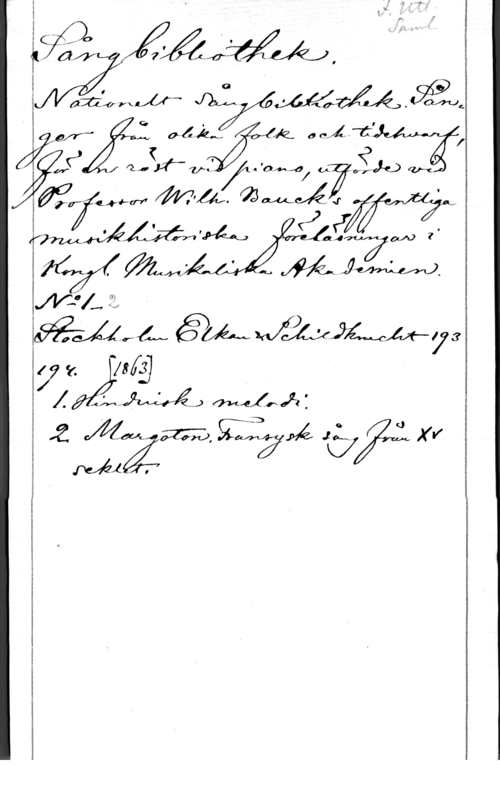 S. Utl.
Saml.
Sångbibliothek.
Nationelt Sångbibliothek. Sån-
ger från olika folk och tidehvarf,
för en röst vid piano, utförde vid
Professor Wilh. Bauck's offentliga
musikhistoriska föreläsningar i
Kongl. Musikaliska Akademien.
Nº 1_2
Stockholm Elkan & Schildknecht 193
194. [1863]
1. Hinduisk melodi.
2. Margoton, Fransysk sång från XV
seklet.